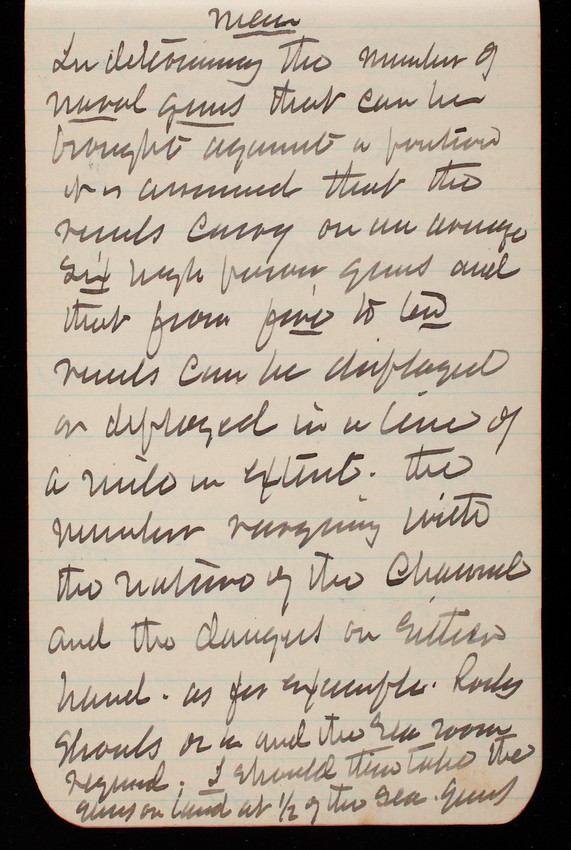 Mem
In determining the number of
naval guns that can be
brought against a position
it is assumed that the
vessels carry on an average
six high power guns and
that from five to ten
vessels can be displayed
or deployed in a line of
a mile in extent. the
number varying with
the nature of the Channel
and the dangers on either
hand. as for example. Rocks
Shoals and the sea room
required. I should then take the
guns on land at 1/2 of the sea. guns